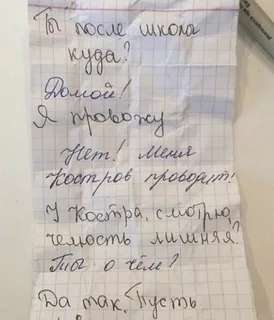 Ты после школа
куда?
Домой!
Я провожу
Нет! Меня
Костров проводит!
У Костра, смотрю,
челюсть лишняя?
Ты о чём?
Да так. Пусть